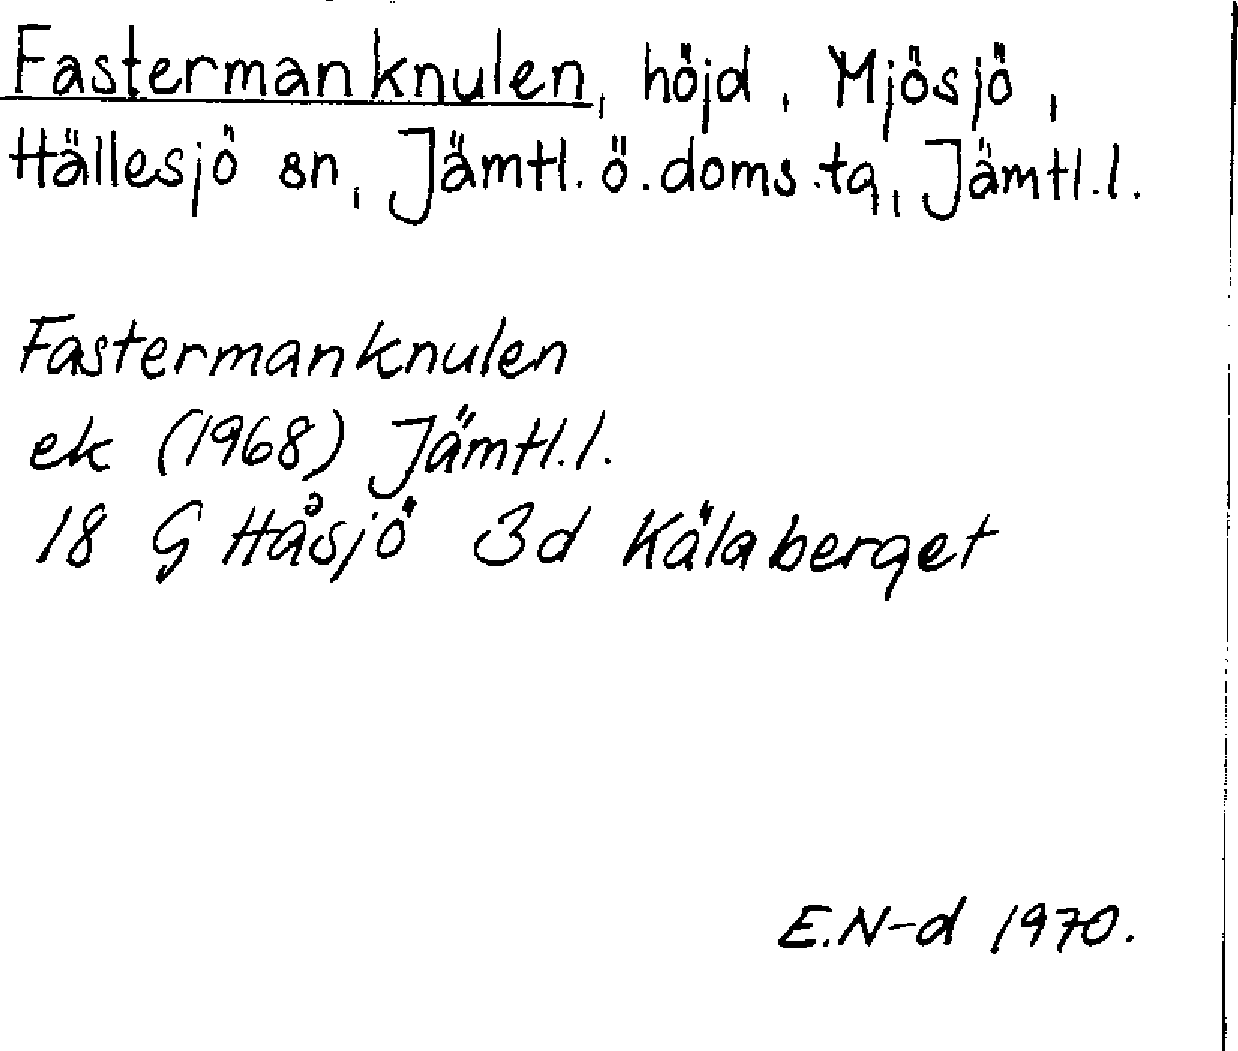 Fastermanknulen, höjd, Mjösjö,
Hällesjö sn, Jämtl. ö. doms.tg, Jämtl.l.
Fastermanknulen
ek (1968) Jämtl.l.
18 G Håsjö 3d Kälaberget
E.N-d 1970.